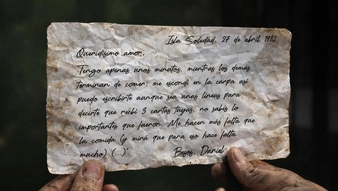 Isla Soledad, 27 de abril 1982
Queridísimo amor:
Tengo apenas unos minutos, mientras los demás
terminan de comer, me escondí en la carpa así
puedo escribirte aunque sea unas líneas para
decirte que recibí 3 cartas tuyas, no sabés lo
importantes que fueron. Me hacen más falta que
la comida (y mirá que para eso hace falta
mucho) (...)
Besos, Daniel